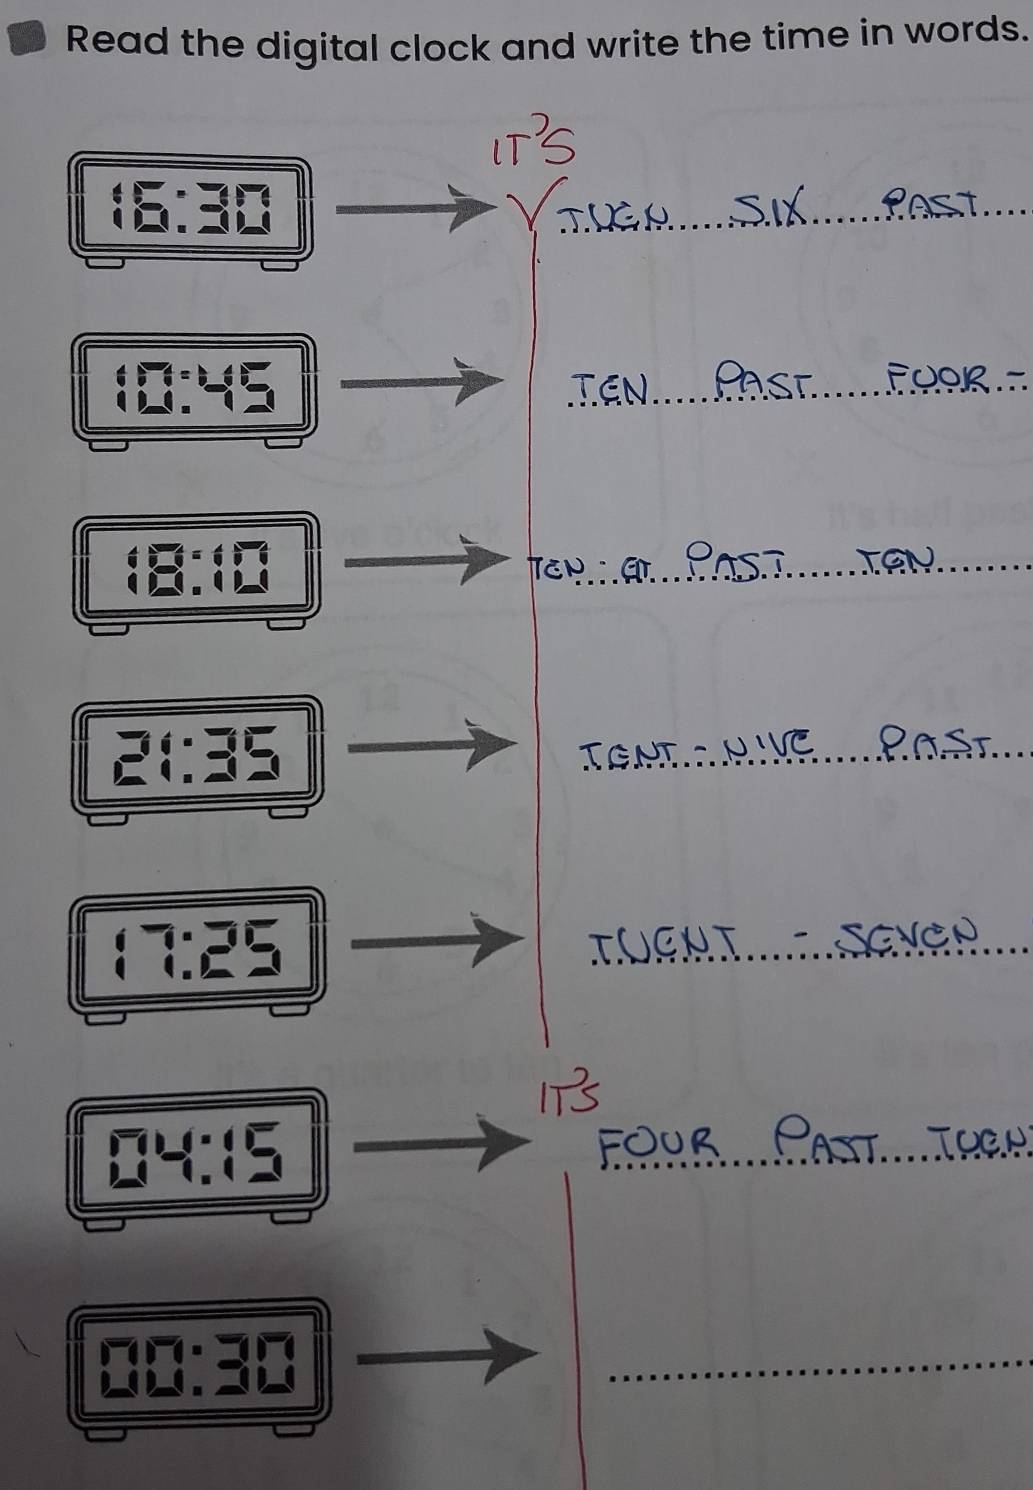 Read the digital clock and write the time in words.
IT'S
16:30 TUEN SIX PAST
10:45 TEN PAST FUOR -
18:10 TEN - ET PAST TEN
21:35 TENT - NIVE PAST
17:25 TUENT - SEVEN
IT'S
04:15 FOUR PAST TUEN
00:30